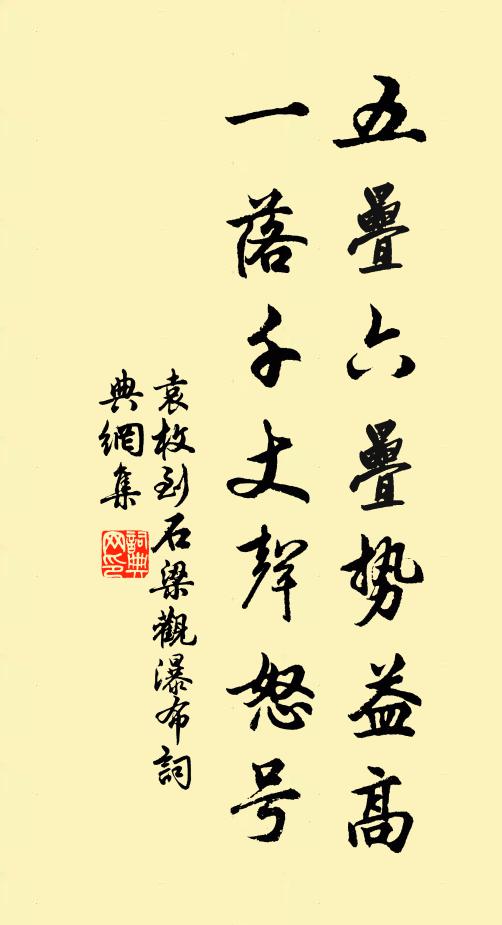 五疊六疊勢益高
一落千丈聲怒号
袁枚到石梁觀瀑布詞
典網集
詞典網印